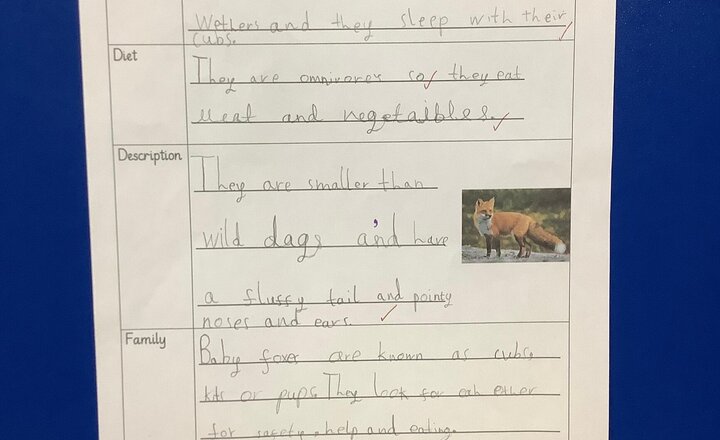 Wetlers and they sleep with their
cubs.
Diet
They are omnivores so they eat
meat and negetaibles.
Description
They are smaller than
wild dags and have
a fluffy tail and pointy
noses and ears.
Family
Baby foxes are known as cubs,
kits or pups. They look for eah ether
for safety, help and eating.